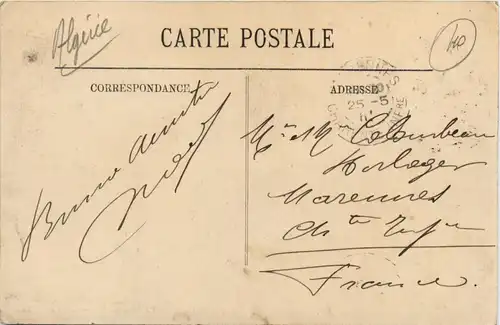 Algérie
CARTE POSTALE
40
CORRESPONDANCE
ADRESSE
25 -5
Bonne amitié
Mr & Me Colombeau
Horloger
Marennes
Chte Infre
France.